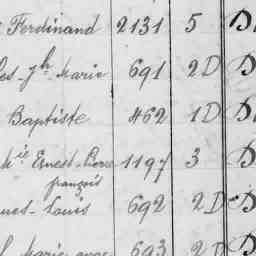 Ferdinand 2131 5 D
es-Jh Marie 691 2D D
Baptiste 462 1D D
Ernest-Pierre 1197 3 D
françois
ues-Louis 692 2D D
Marie 693 2D D